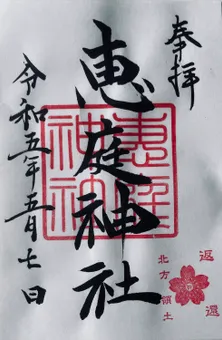 奉拝
恵庭神社
令和五年五月七日
恵庭神社
北方領土
返還